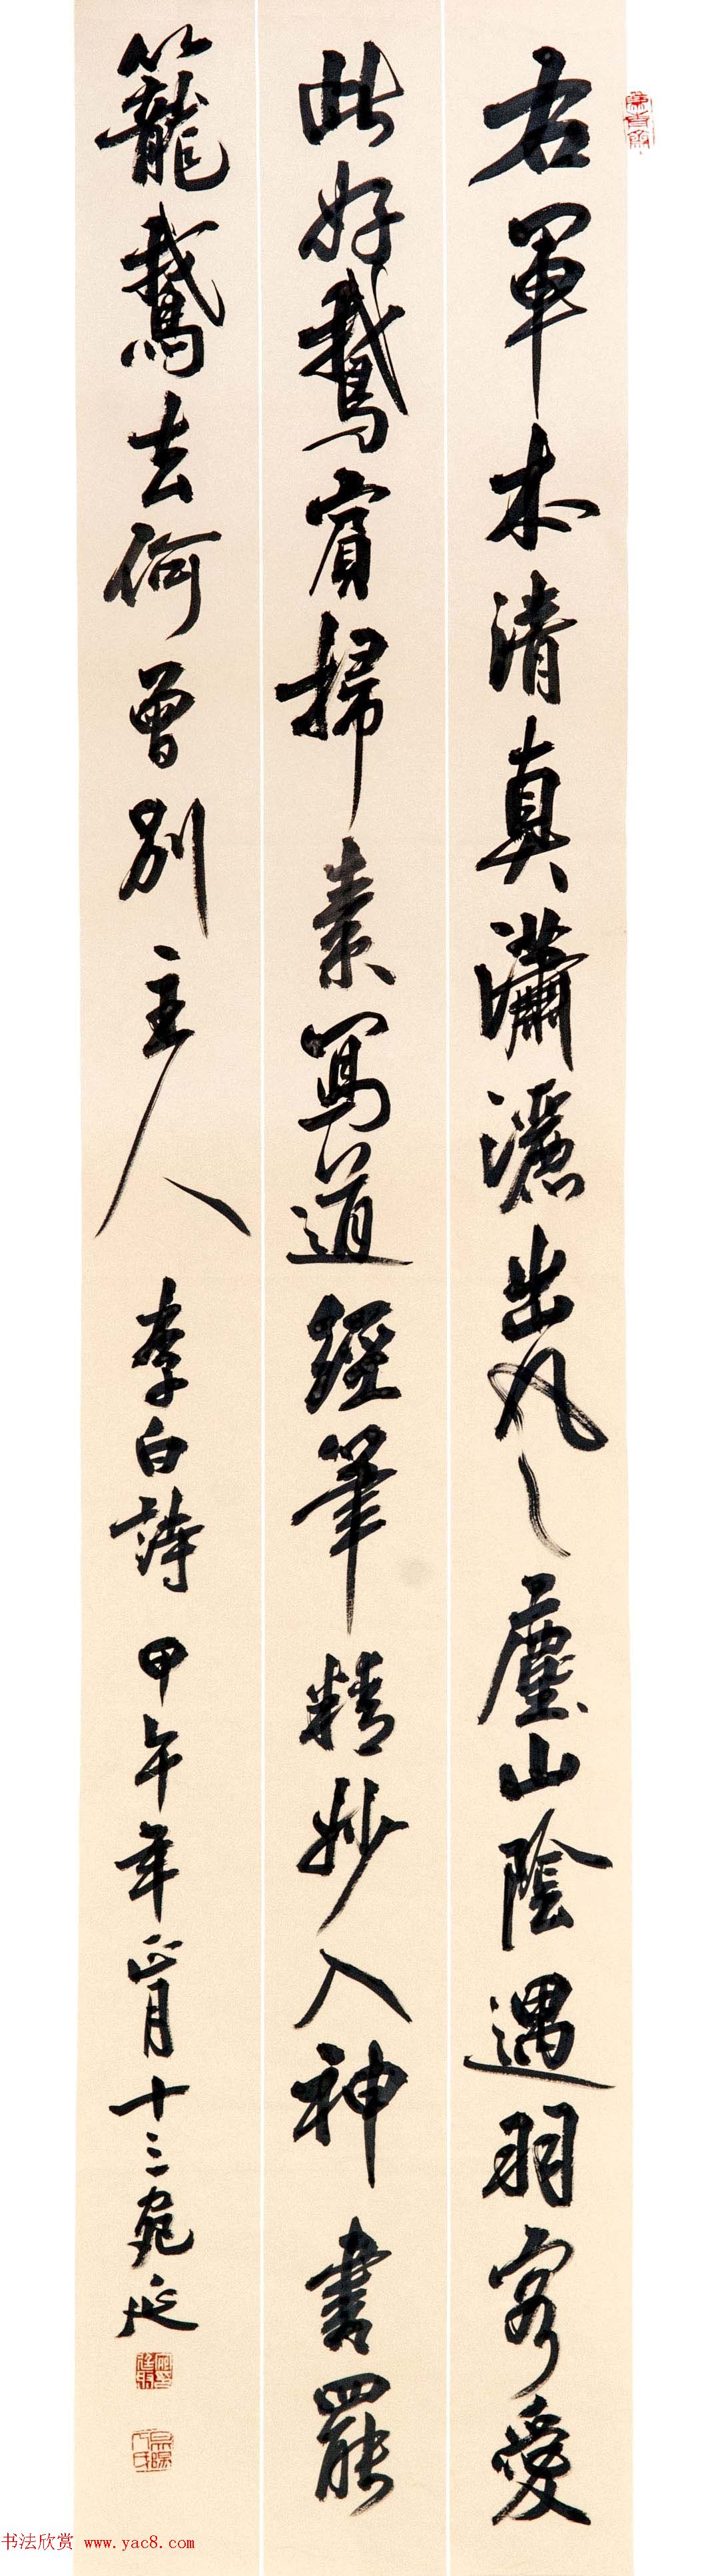 右軍本清真瀟灑出風塵山陰遇羽客愛
此好鵝賓掃素寫道經筆精妙入神書罷
籠鵝去何曾別主人李白詩甲午年正月十三宛延
书法欣赏 www.yac8.com